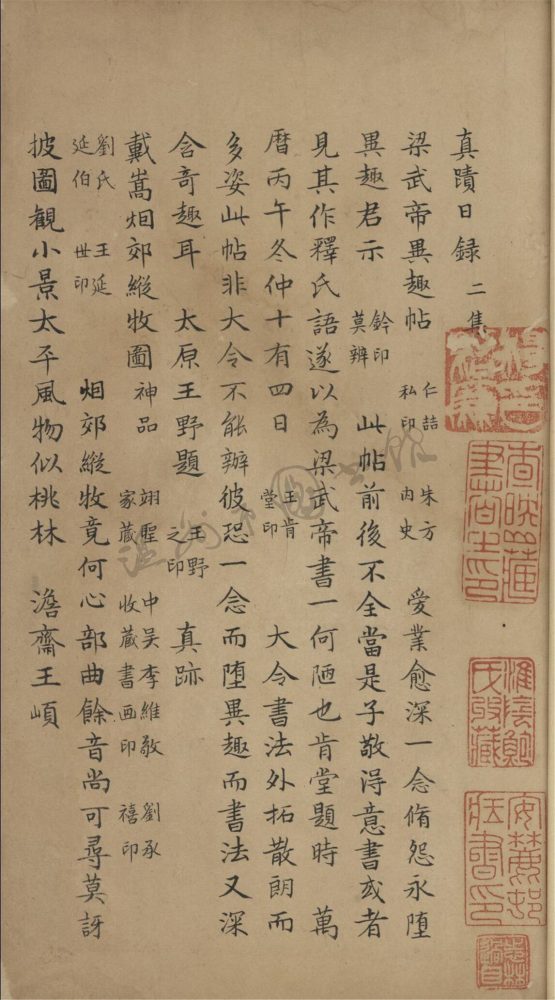 真蹟日録 二集
梁武帝異趣帖 仁喆私印 朱方内史 愛業愈深一念脩怨永堕
異趣君示 鈐印莫辨 此帖前後不全當是子敬得意書或者
見其作釋氏語遂以為梁武帝書一何陋也肯堂題時 萬
暦丙午冬仲十有四日 王肯堂印 大令書法外拓散朗而
多姿此帖非大令不能辦彼恐一念而堕異趣而書法又深
含竒趣耳 太原王野題 王野之印 真跡
戴嵩畑郊縱牧圖 神品 翊聖家藏 中吴李維敬收藏書画印 劉承禧印
劉氏延伯 王延世印 畑郊縱牧竟何心部曲餘音尚可尋莫訝
披圖觀小景太平風物似桃林 澹齋王㟲